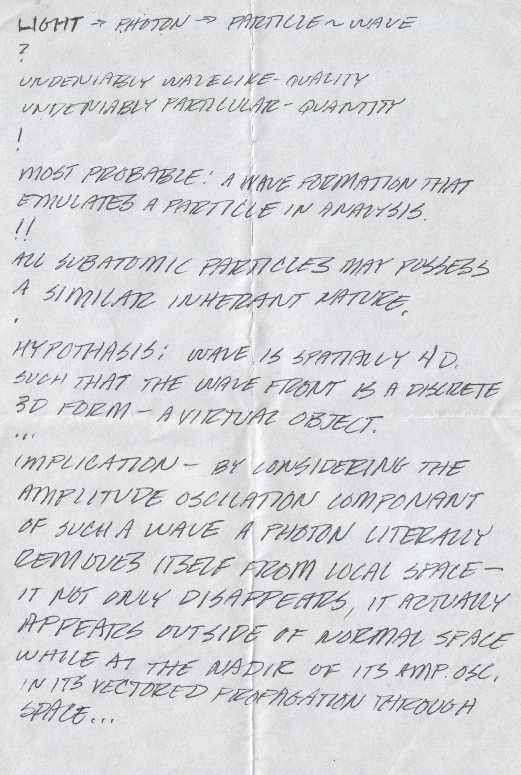 LIGHT → PHOTON → PARTICLE ~ WAVE
?
UNDENIABLY WAVELIKE - QUALITY
UNDENIABLY PARTICULAR - QUANTITY
!
MOST PROBABLE: A WAVE FORMATION THAT
EMULATES A PARTICLE IN ANALYSIS.
!!
ALL SUBATOMIC PARTICLES MAY POSSESS
A SIMILAR INHERANT NATURE.
.
HYPOTHASIS: WAVE IS SPATIALLY 4D.
SUCH THAT THE WAVE FRONT IS A DISCRETE
3D FORM - A VIRTUAL OBJECT.
...
IMPLICATION - BY CONSIDERING THE
AMPLITUDE OSCILATION COMPONANT
OF SUCH A WAVE A PHOTON LITERALLY
REMOVES ITSELF FROM LOCAL SPACE -
IT NOT ONLY DISAPPEARS, IT ACTUALLY
APPEARS OUTSIDE OF NORMAL SPACE
WHILE AT THE NADIR OF ITS AMP. OSC.
IN ITS VECTORED PROPAGATION THROUGH
SPACE...